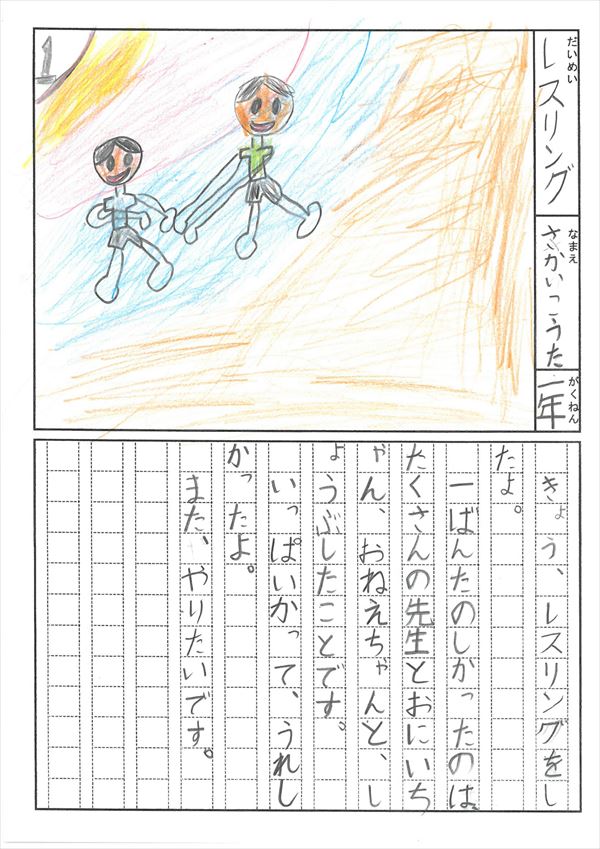 だいめい
レスリング
なまえ
さかいっこうた
がくねん
一年
1
きょう、レスリングをし
たよ。
一ばんたのしかったのは
たくさんの先生とおにいち
ゃん、おねえちゃんと、し
ょうぶしたことです。
いっぱいかって、うれし
かったよ。
また、やりたいです。